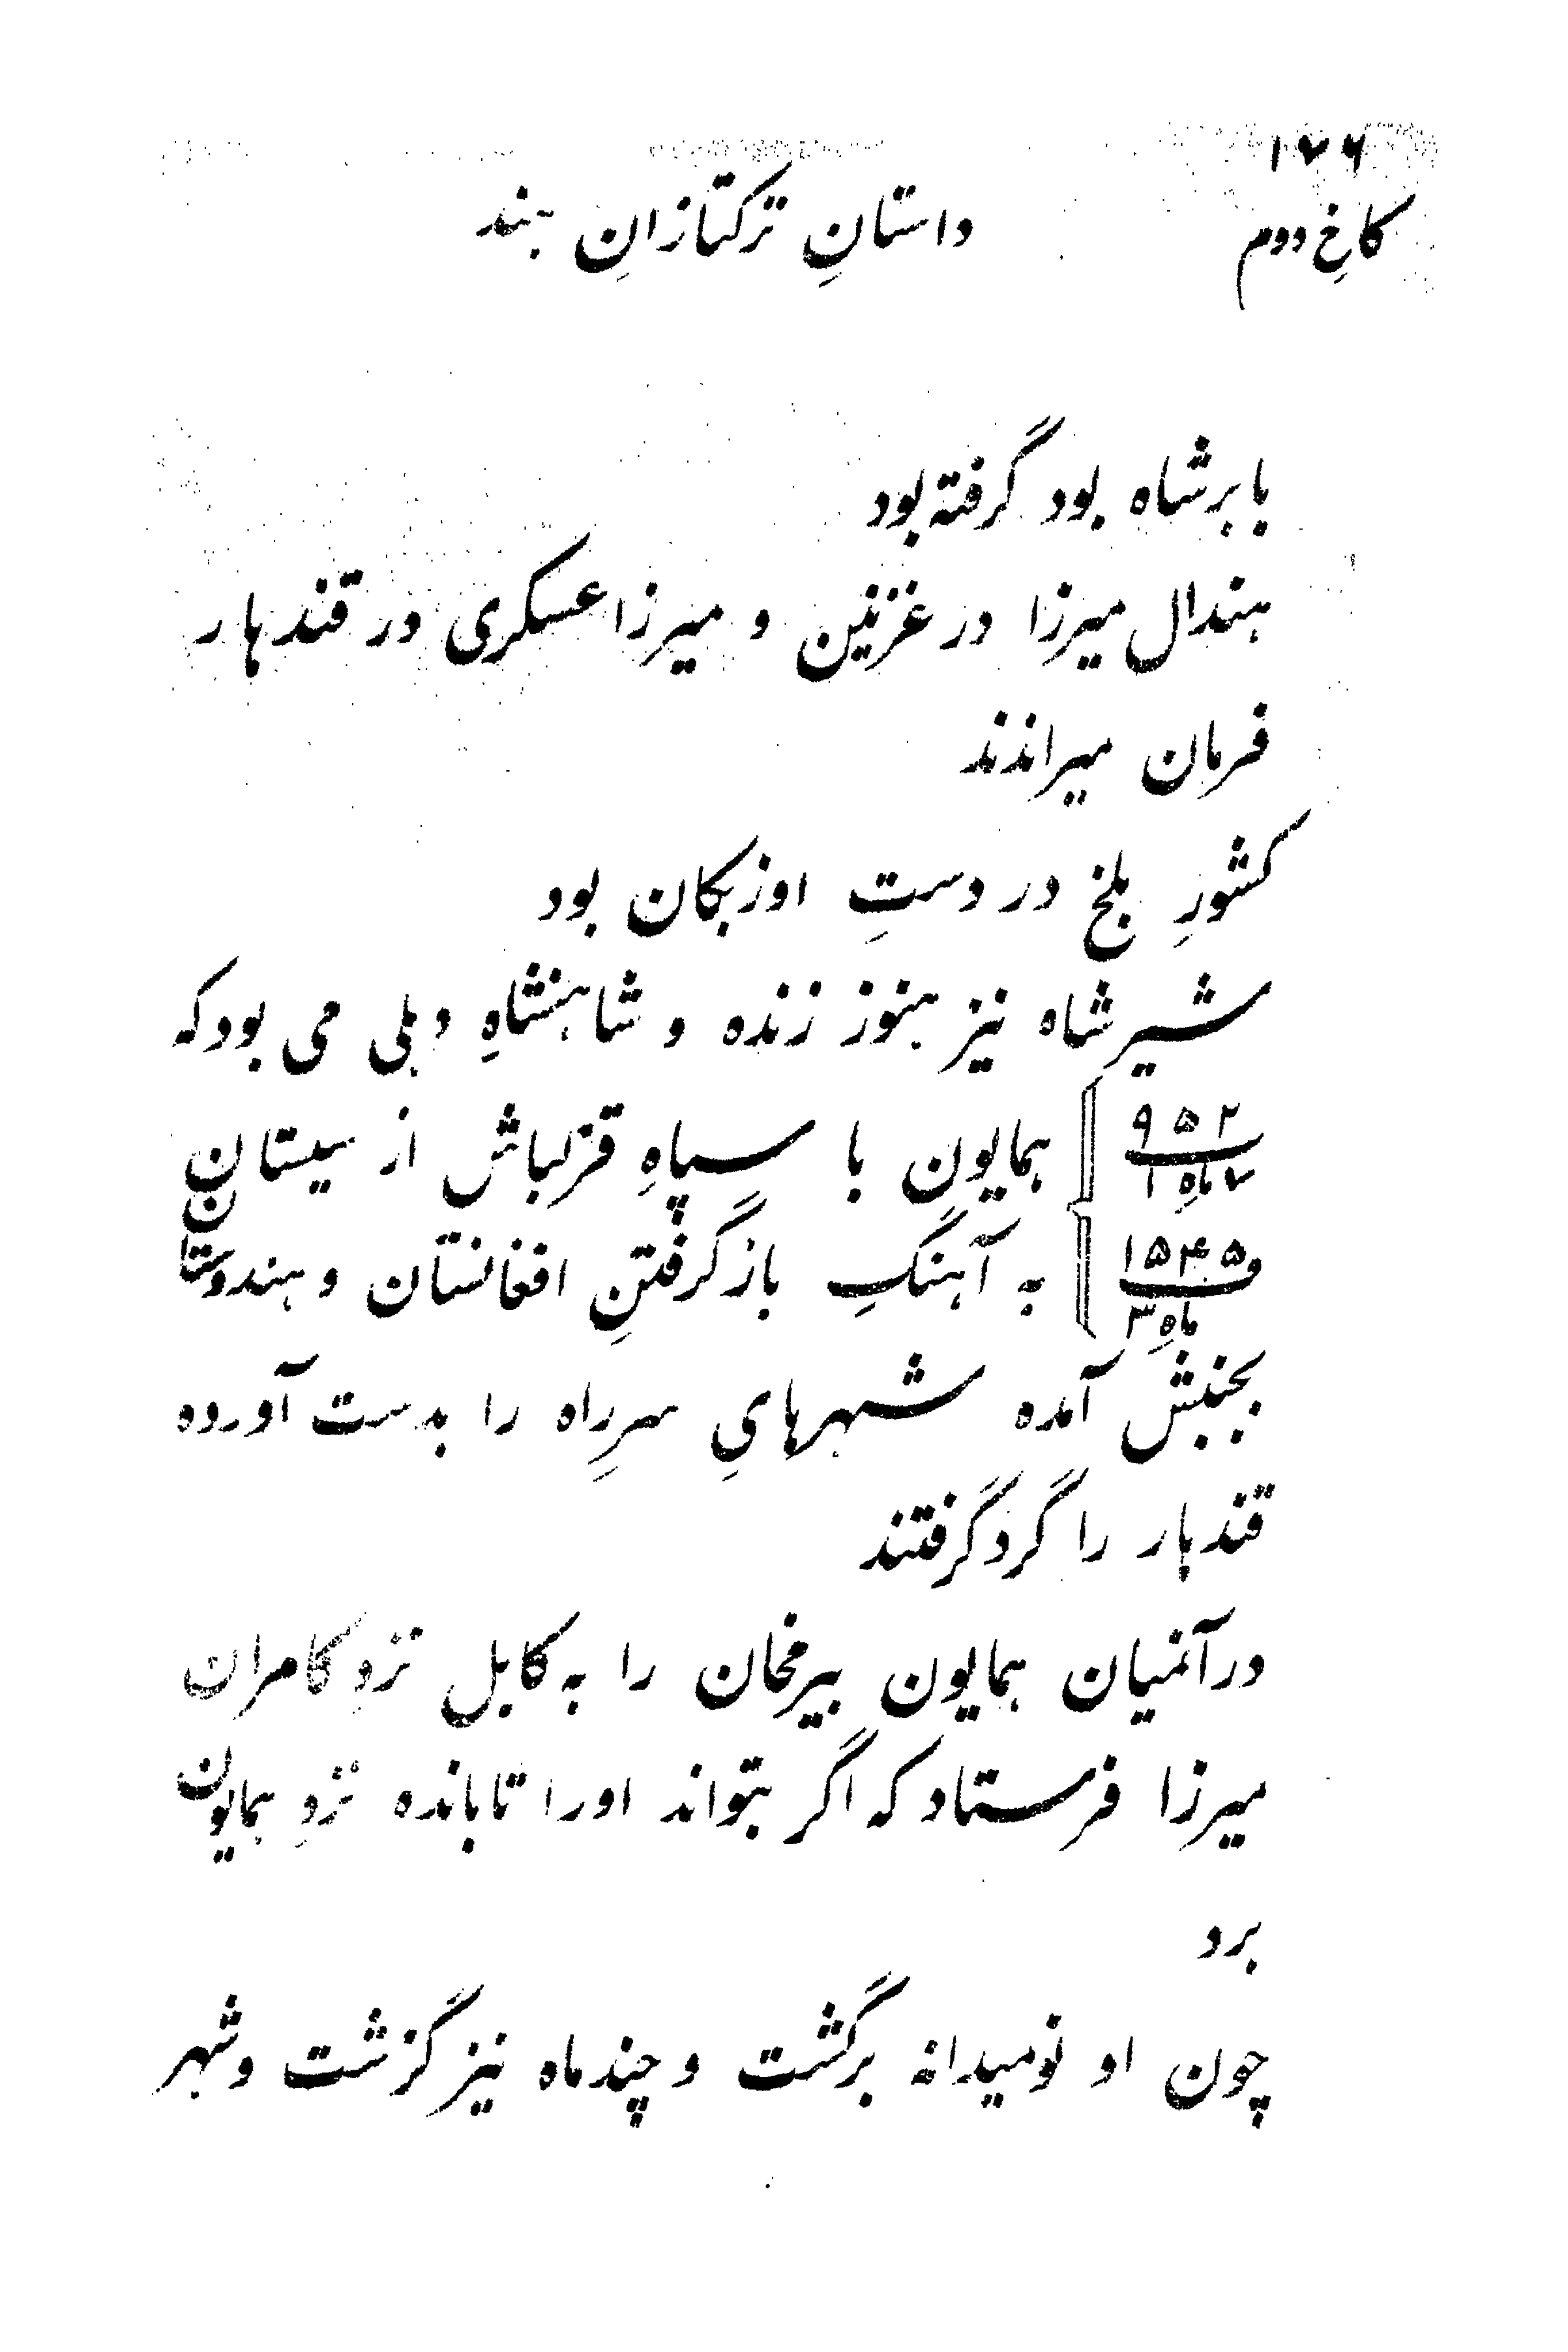 ۱۷۶
کاخِ دوم داستانِ ترکتازانِ هند
بابرشاه بود گرفته بود
هندال میرزا در غزنین و میرزا عسکری در قندهار
فرمان میراندند
کشورِ بلخ در دستِ اوزبکان بود
شیرشاه نیز هنوز زنده و شاهنشاهِ دهلی می بود که
۹۵۲ همایون با سپاهِ قزلباش از سیستان
۷ ماهِ ۱
۱۵۴۵ به آهنگِ بازگرفتنِ افغانستان و هندوستان
ماهِ ۳
بجنبش آمده شهرهایِ سرِ راه را بدست آورده
قندهار را گرد گرفتند
در آنمیان همایون بیرمخان را به کابل نزدِ کامران
میرزا فرستاد که اگر بتواند او را تابانده نزدِ همایون
برد
چون او نومیدانه برگشت و چند ماه نیز گزشت و شهر